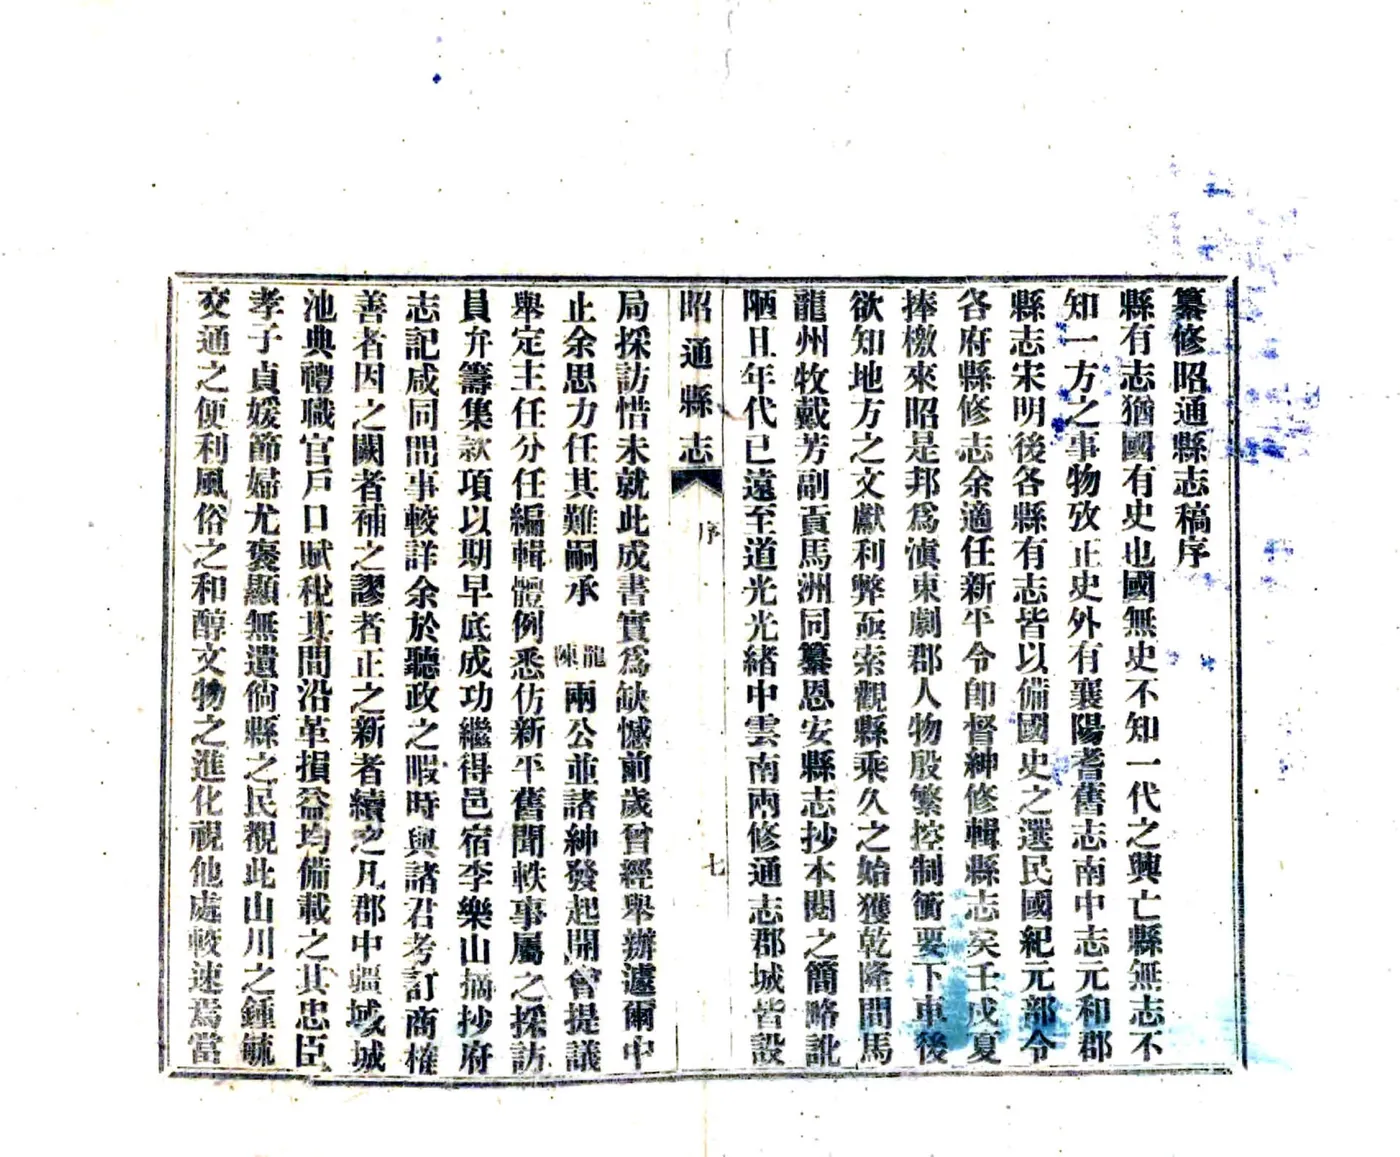 纂修昭通縣志稿序
縣有志猶國有史也國無史不知一代之興亡縣無志不
知一方之事物攷正史外有襄陽耆舊志南中志元和郡
縣志宋明後各縣有志皆以備國史之選民國紀元部令
各府縣修志余適任新平令卽督紳修輯縣志矣壬戌夏
捧檄來昭是邦爲滇東劇郡人物殷繁控制衝要下車後
欲知地方之文獻利弊亟索觀縣乘久之始獲乾隆間馬
龍州牧戴芳副貢馬洲同纂恩安縣志抄本閱之簡略訛
陋且年代已遠至道光光緒中雲南兩修通志郡城皆設
昭通縣志 序 七
局採訪惜未就此成書實爲缺憾前歲曾經舉辦遽爾中
止余思力任其難嗣承龍陳兩公並諸紳發起開會提議
舉定主任分任編輯體例悉仿新平舊聞軼事屬之採訪
員弁籌集款項以期早底成功繼得邑宿李樂山摘抄府
志記咸同間事較詳余於聽政之暇時與諸君考訂商榷
善者因之闕者補之謬者正之新者續之凡郡中疆域城
池典禮職官戶口賦稅其間沿革損益均備載之其忠臣
孝子貞媛節婦尤褒顯無遺徜縣之民視此山川之鍾毓
交通之便利風俗之和醇文物之進化視他處較速焉當